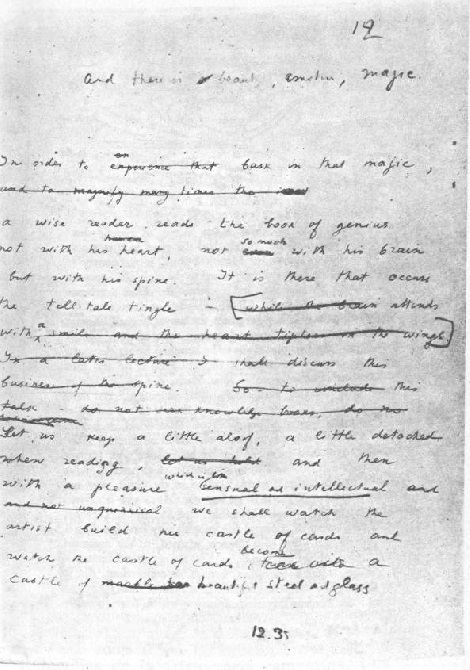 19
And there is beauty, emotion, magic.
In order to experience that bask in that magic,
and to magnify many times the
a wise reader reads the book of genius
not with his heart, not so much with his brain
but with his spine. It is there that occurs
the tell tale tingle — [while the brain attends
with a smile and the heart tiptoes in the wings]
In a later lecture I shall discuss this
business of the spine. So to conclude this
talk do not
Let us keep a little aloof, a little detached
when reading, and then
with a pleasure which is sensual as intellectual and
and not we shall watch the
artist build his castle of cards and
watch the castle of cards become a
castle of beautiful steel and glass
12.35